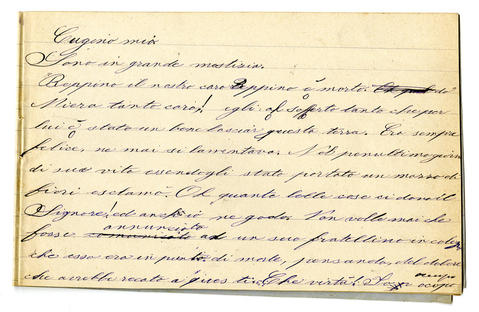 Eugenio mio
Sono in grande mestizia.
Peppino il nostro caro Peppino è morto.
M'era tanto caro! egli à sofferto tanto che per
lui è stato un bene lasciar questa terra. Era sempre
felice, ne mai si lamentava. Nel penultimo giorno
di sua vita essendogli stato portato un mazzo di
fiori esclamò: Oh quante belle cose ci dona il
Signore! ed anch'io ne godo. Non volle mai che
fosse annunciato ad un suo fratellino in
che esso era in punto di morte, pensando, del dolore
che avrebbe recato a Che virtù!